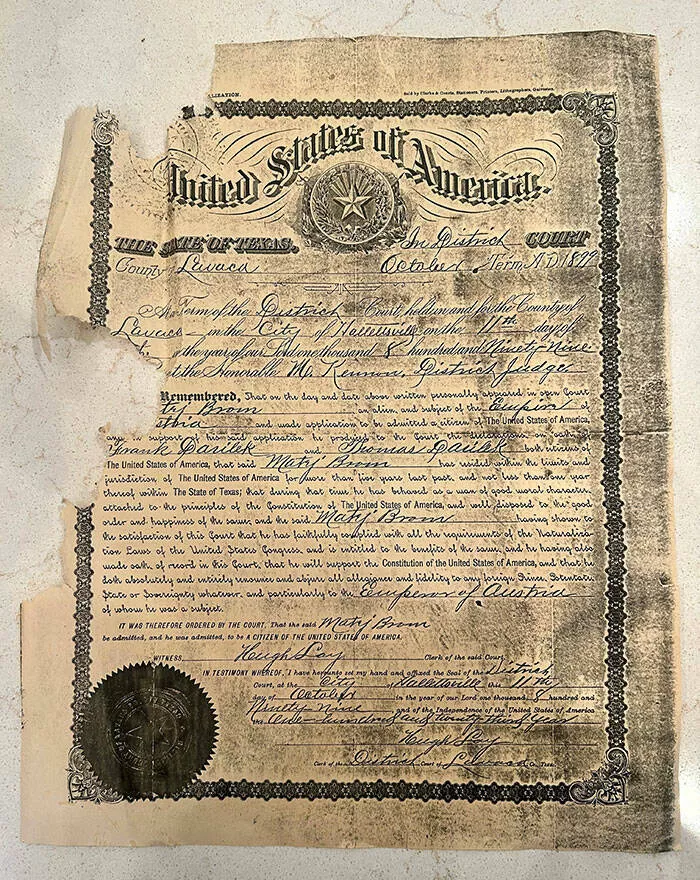 LIZATION. Sold by Clarke & Courts, Stationers, Printers, Lithographers, Galveston.
United States of America.
THE STATE OF TEXAS. In District COURT
County Lavaca October Term, A.D. 1899
At a Term of the District Court, holden in and for the County of
Lavaca in the City of Hallettsville on the 11th day of
the year of our Lord one thousand 8 hundred and Ninety Nine
the Honorable Mc. Kennon, District Judge
Remembered, That on the day and date above written personally appeared in open Court
Brom an alien and subject of the Empire of
and made application to be admitted a citizen of The United States of America,
and in support of his said application he produced to the Court the declarations, on oath, of
Frank Darilek and Thomas Darilek both citizens of
The United States of America, that said Matij Brom has resided within the limits and
jurisdiction of The United States of America for more than five years last past, and not less than one year
thereof within The State of Texas; that during that time he has behaved as a man of good moral character,
attached to the principles of the Constitution of The United States of America, and well disposed to the good
order and happiness of the same; and the said Matij Brom having shown to
the satisfaction of this Court that he has faithfully complied with all the requirements of the Naturaliza-
tion Laws of the United States Congress, and is entitled to the benefits of the same, and he having also
made oath, of record in this Court, that he will support the Constitution of the United States of America, and that he
doth absolutely and entirely renounce and abjure all allegiance and fidelity to any foreign Prince, Potentate,
State or Sovereignty whatever, and particularly to the Emperor of Austria
of whom he was a subject.
IT WAS THEREFORE ORDERED BY THE COURT, That the said Matij Brom
be admitted, and he was admitted, to be A CITIZEN OF THE UNITED STATES OF AMERICA.
WITNESS Hugh Lay Clerk of the said Court
IN TESTIMONY WHEREOF, I have hereunto set my hand and affixed the Seal of the District
Court, at the City of Hallettsville this 11th
day of October in the year of our Lord one thousand 8 hundred and
Ninety Nine and of the Independence of the United States of America
the One hundred and twenty third Year
Hugh Lay
Clerk of the District Court of Lavaca Co., Texas.